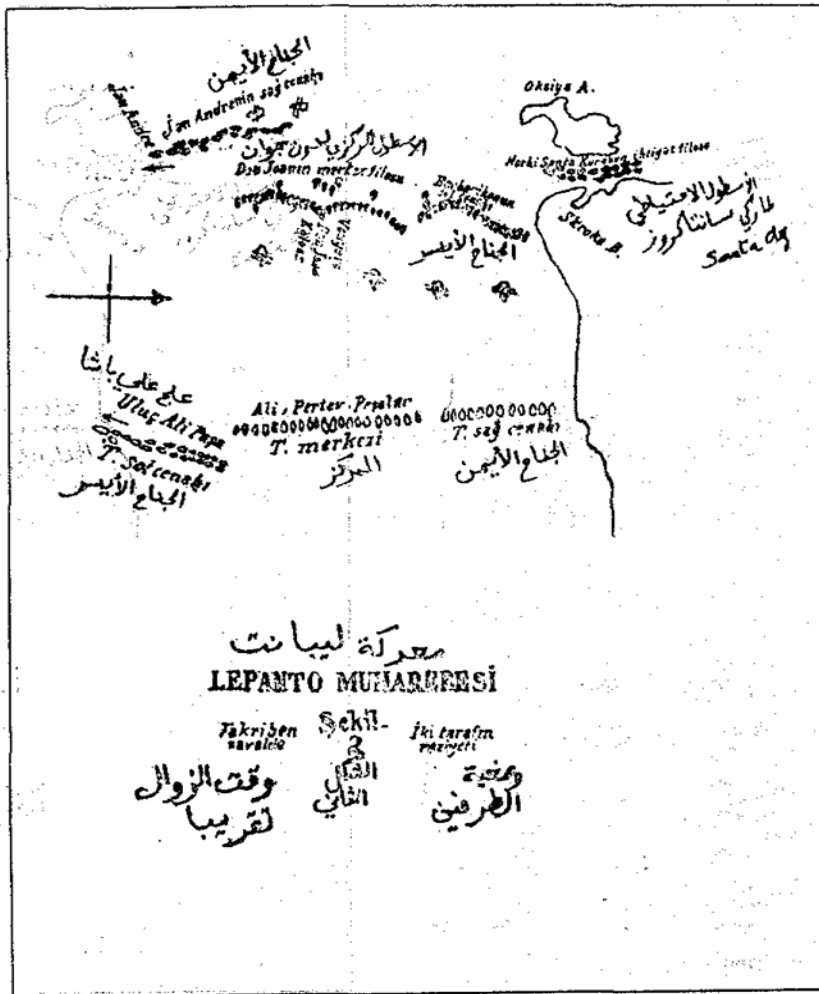 الجناح الأيمن
Jan Andre
Jan Andrenin sağ cenahı
الاسطول المركزي للدون جوان
Don Joanın merkez filosu
الجناح الأيسر
Oksiya A.
Marki Santa Kuruzun ihtiyat filosu
الأسطول الاحتياطي
ماركي سانتاكروز
Santa
Skrofa B.
علج علي باشا
Uluç Ali Paşa
T. sol cenahı
الجناح الأيسر
Ali, Pertev Paşalar
T. merkezi
المركز
T. sağ cenahı
الجناح الأيمن
معركة ليبانت
LEPANTO MUHAREBESİ
Takriben
Şekil-
2
İki tarafın
vaziyeti
وقت الزوال
تقريبا
الشكل
الثاني
وضعية
الطرفين